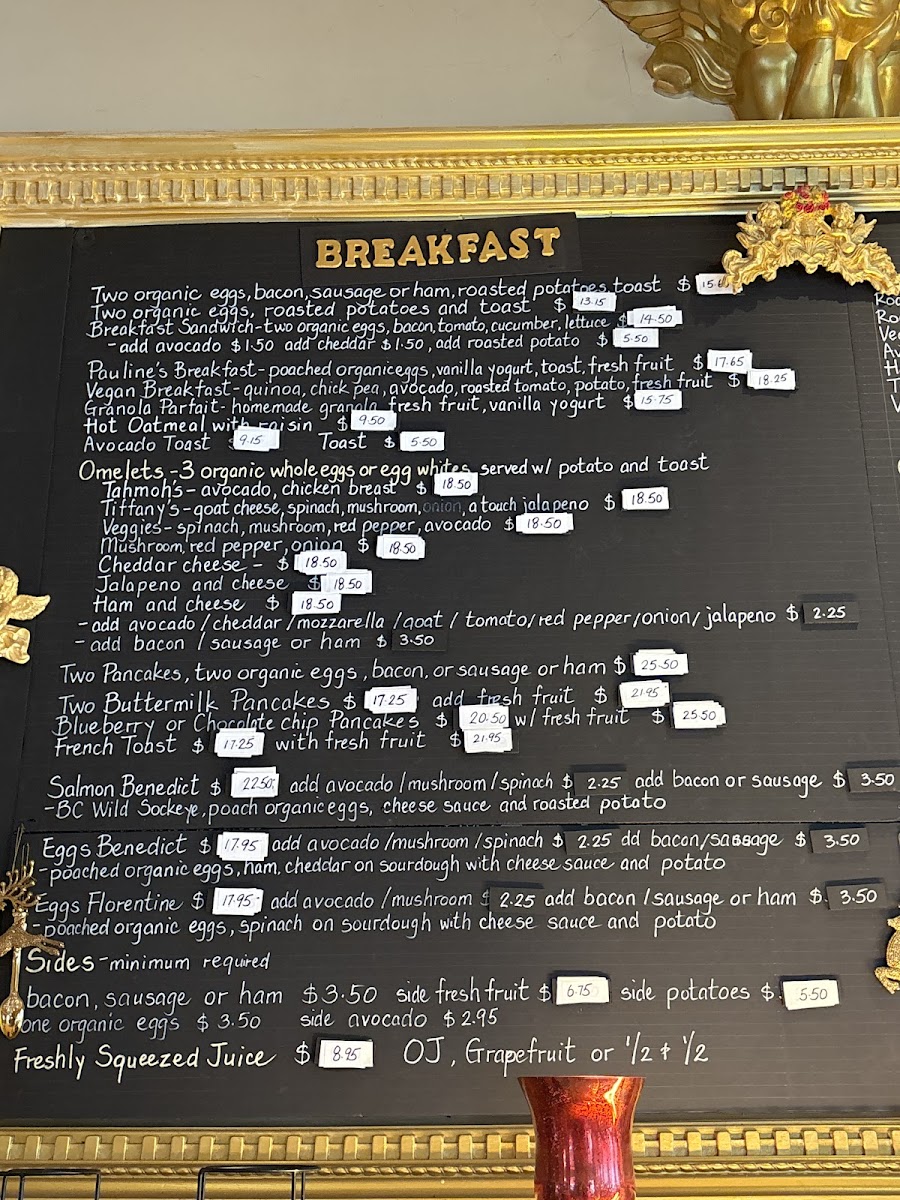 BREAKFAST
Two organic eggs, bacon, sausage or ham, roasted potatoes, toast $
Two organic eggs, roasted potatoes and toast $ 13.15
Breakfast Sandwich-two organic eggs, bacon, tomato, cucumber, lettuce $ 14.50
-add avocado $1.50 add cheddar $1.50, add roasted potato $ 5.50
Pauline's Breakfast-poached organic eggs, vanilla yogurt, toast, fresh fruit $ 17.65
Vegan Breakfast-quinoa, chick pea, avocado, roasted tomato, potato, fresh fruit $ 18.25
Granola Parfait-homemade granola, fresh fruit, vanilla yogurt $ 15.75
Hot Oatmeal with raisin $ 9.50
Avocado Toast $ 9.15 Toast $ 5.50
Omelets-3 organic whole eggs or egg whites, served w/ potato and toast
Tahmoh's-avocado, chicken breast $ 18.50
Tiffany's-goat cheese, spinach, mushroom, onion, a touch jalapeno $ 18.50
Veggies-spinach, mushroom, red pepper, avocado $ 18.50
Mushroom, red pepper, onion $ 18.50
Cheddar cheese - $ 18.50
Jalapeno and cheese $ 18.50
Ham and cheese $ 18.50
-add avocado/cheddar/mozzarella/goat/tomato/red pepper/onion/jalapeno $ 2.25
-add bacon/sausage or ham $ 3.50
Two Pancakes, two organic eggs, bacon, or sausage or ham $ 25.50
Two Buttermilk Pancakes $ 17.25 add fresh fruit $ 21.95
Blueberry or Chocolate chip Pancakes $ 20.50 w/ fresh fruit $ 25.50
French Toast $ 17.25 with fresh fruit $ 21.95
Salmon Benedict $ 22.50 add avocado/mushroom/spinach $ 2.25 add bacon or sausage $ 3.50
-BC Wild Sockeye, poach organic eggs, cheese sauce and roasted potato
Eggs Benedict $ 17.95 add avocado/mushroom/spinach $ 2.25 dd bacon/sausage $ 3.50
-poached organic eggs, ham, cheddar on sourdough with cheese sauce and potato
Eggs Florentine $ 17.95 add avocado/mushroom $ 2.25 add bacon/sausage or ham $ 3.50
-poached organic eggs, spinach on sourdough with cheese sauce and potato
Sides-minimum required
bacon, sausage or ham $3.50 side fresh fruit $ 6.75 side potatoes $ 5.50
one organic eggs $3.50 side avocado $2.95
Freshly Squeezed Juice $ 8.95 OJ, Grapefruit or 1/2 + 1/2